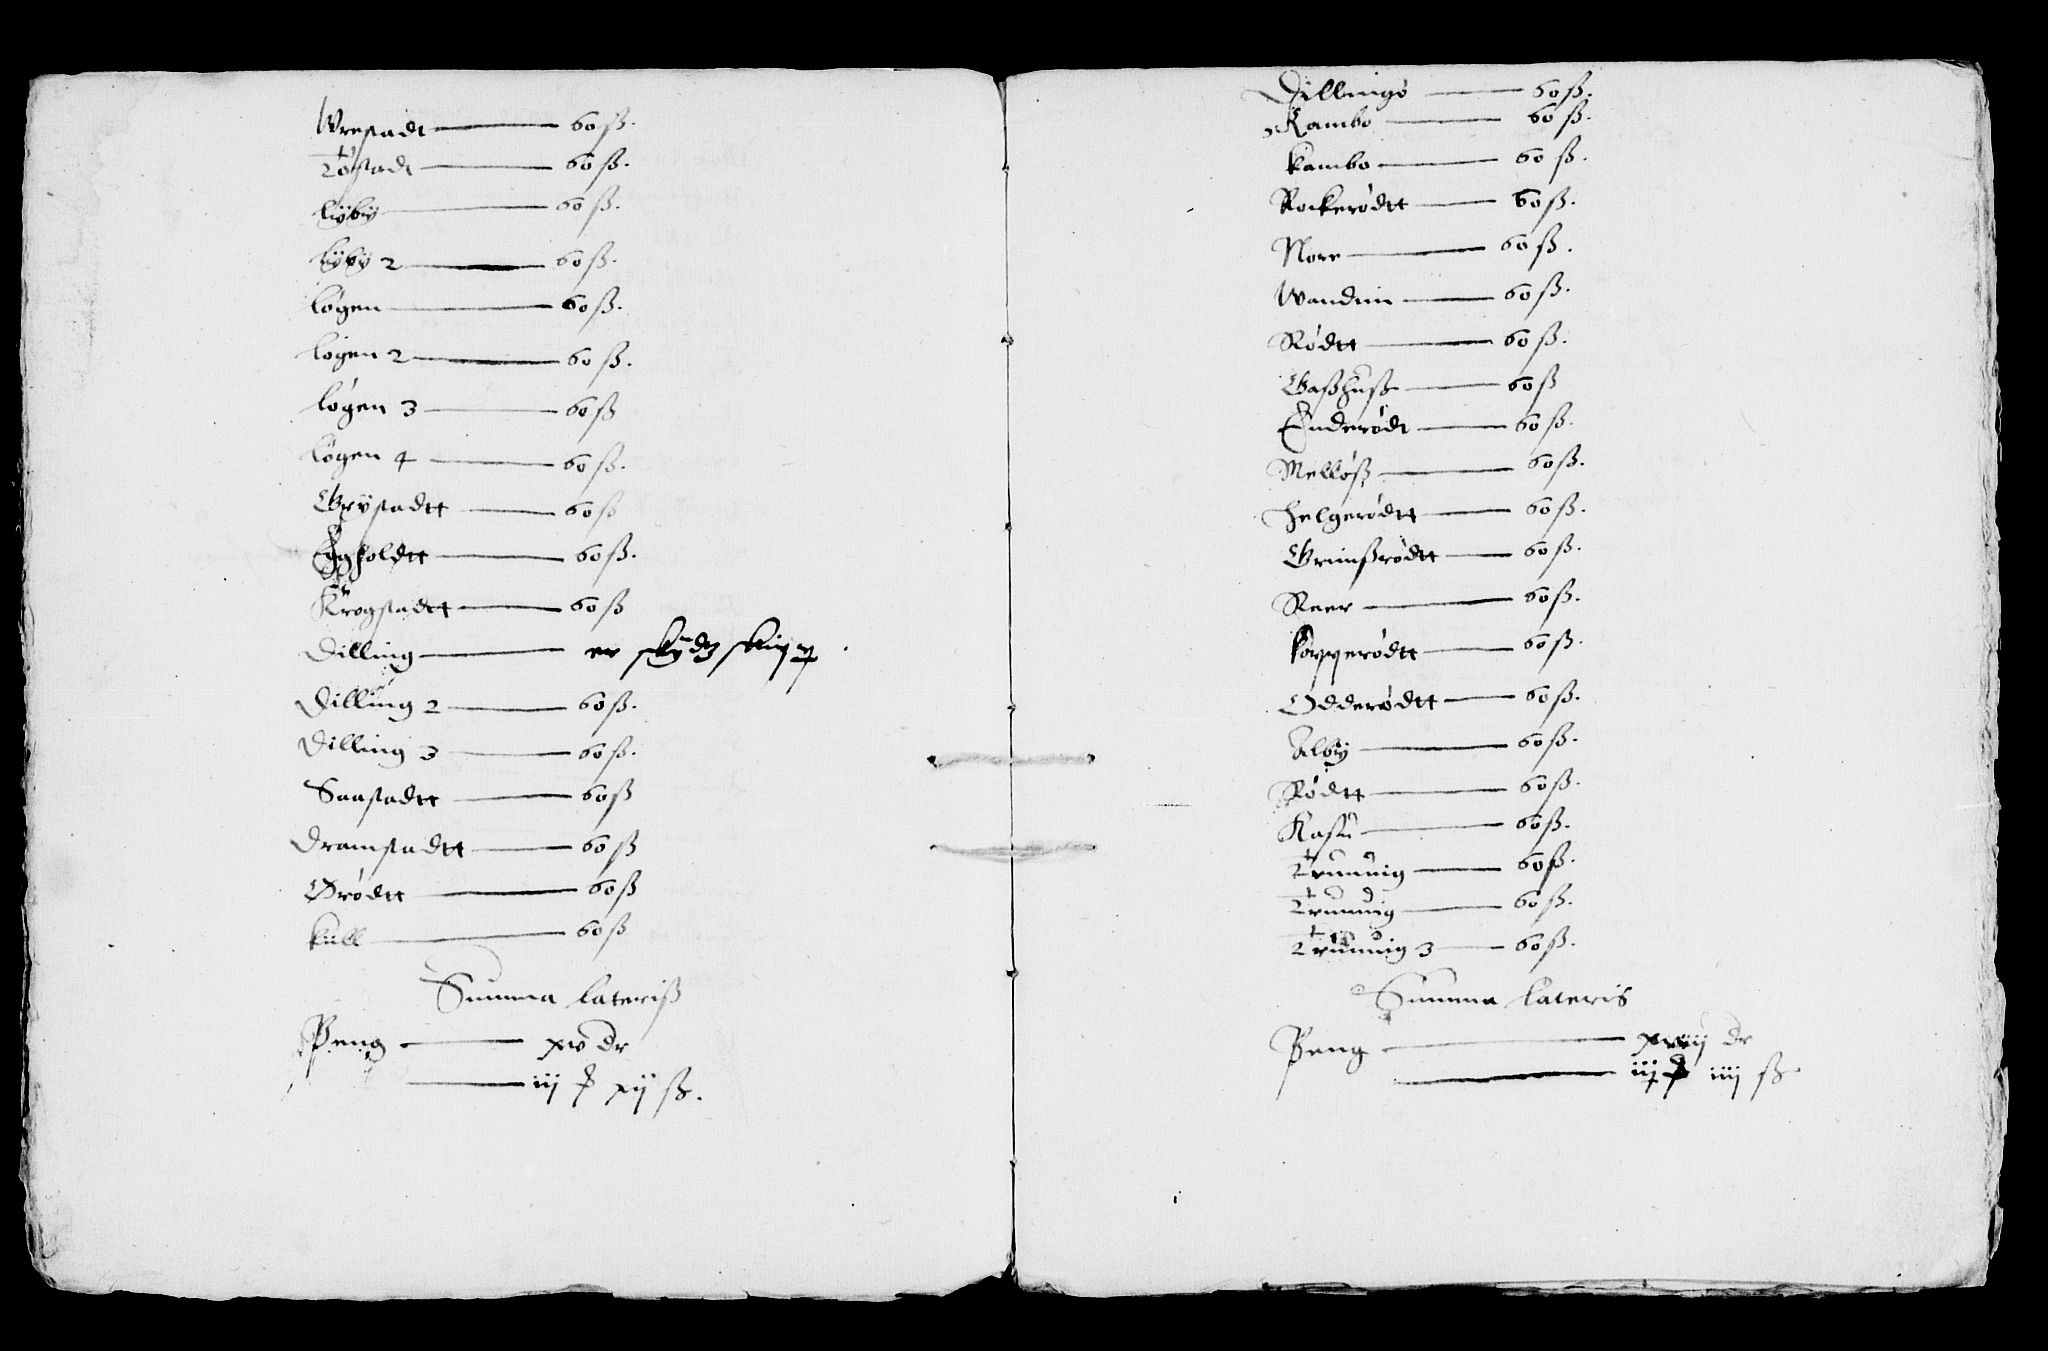 Wrestadt — 60 ß.
Tøstadt — 60 ß.
Lÿbÿ — 60 ß.
Lÿbÿ 2 — 60 ß.
Løgen — 60 ß.
Løgen 2 — 60 ß.
Løgen 3 — 60 ß
Løgen 4 — 60 ß.
Grÿstadtt — 60 ß
Eggholdtt — 60 ß.
Krogstadtt — 60 ß
Dilling — er
Dilling 2 — 60 ß.
Dilling 3 — 60 ß.
Saastadtt — 60 ß
Dramstadtt — 60 ß
Ørødtt — 60 ß
Kull — 60 ß
Summa lateriß
Peng — xv dr
— iij xij ß.
Dillingø — 60 ß.
Kambo — 60 ß.
Kambo — 60 ß.
Rockerødtt — 60 ß.
Nore — 60 ß.
Wanduin — 60 ß.
Rødtt — 60 ß.
Gaßhuß — 60 ß
Enderødt — 60 ß.
Melløß — 60 ß.
Helgerødtt — 60 ß.
Grimßrødtt — 60 ß.
Reer — 60 ß.
Kopperødtt — 60 ß.
Odderødtt — 60 ß.
Albÿ — 60 ß.
Rødtt — 60 ß.
Kase — 60 ß.
Tronuig — 60 ß.
Tronuig — 60 ß.
Tronuig 3 — 60 ß.
Summa lateris
Peng — xvij dr
— iij iiij ß.